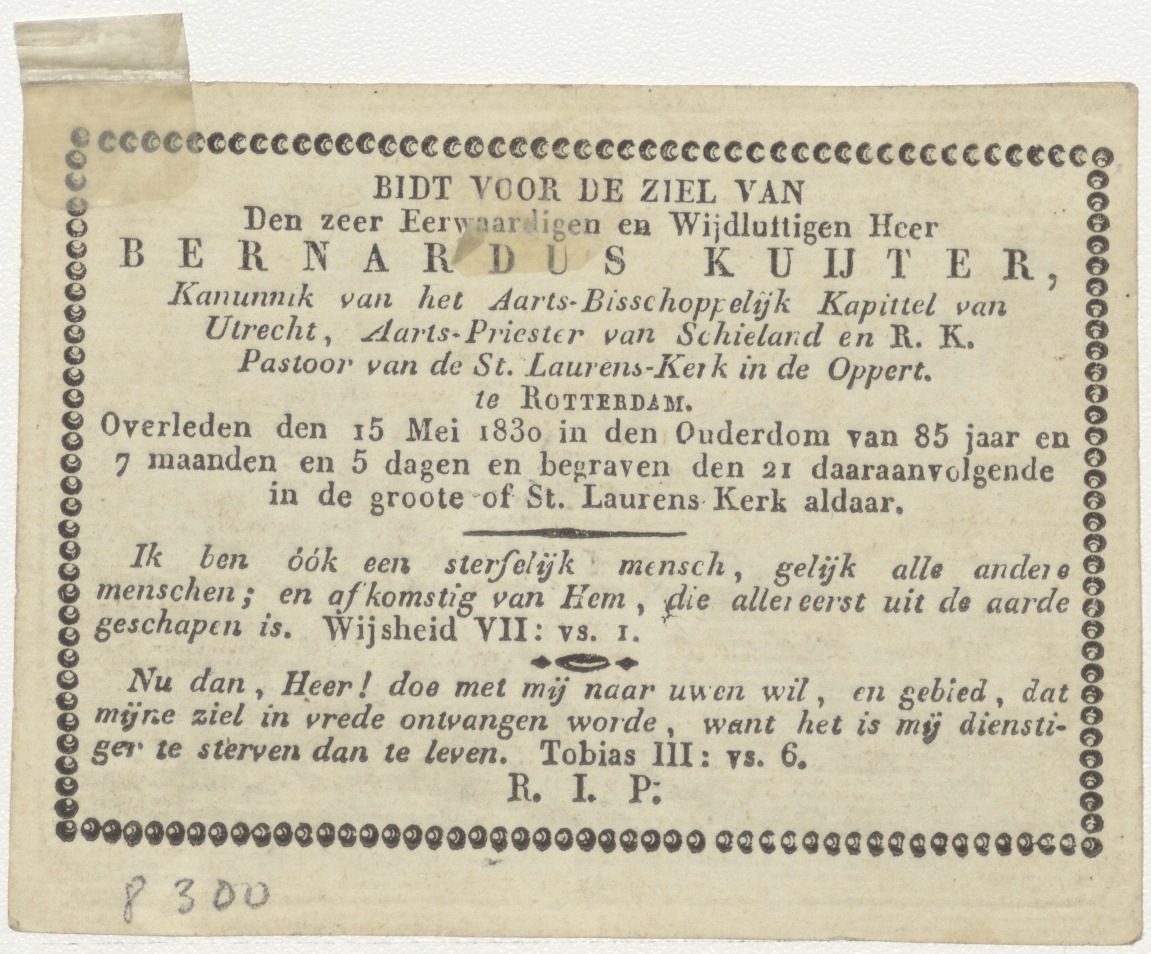 BIDT VOOR DE ZIEL VAN
Den zeer Eerwaardigen en Wijdluftigen Heer
BERNARDUS KUIJTER,
Kanunnik van het Aarts-Bisschoppelijk Kapittel van
Utrecht, Aarts-Priester van Schieland en R. K.
Pastoor van de St. Laurens-Kerk in de Oppert.
te ROTTERDAM.
Overleden den 15 Mei 1830 in den Ouderdom van 85 jaar en
7 maanden en 5 dagen en begraven den 21 daaraanvolgende
in de groote of St. Laurens Kerk aldaar.
Ik ben óók een sterfelijk mensch, gelijk alle andere
menschen; en afkomstig van Hem, die allereerst uit de aarde
geschapen is. Wijsheid VII: vs. 1.
Nu dan, Heer! doe met mij naar uwen wil, en gebied, dat
mijne ziel in vrede ontvangen worde, want het is mij diensti-
ger te sterven dan te leven. Tobias III: vs. 6.
R. I. P.
8 300